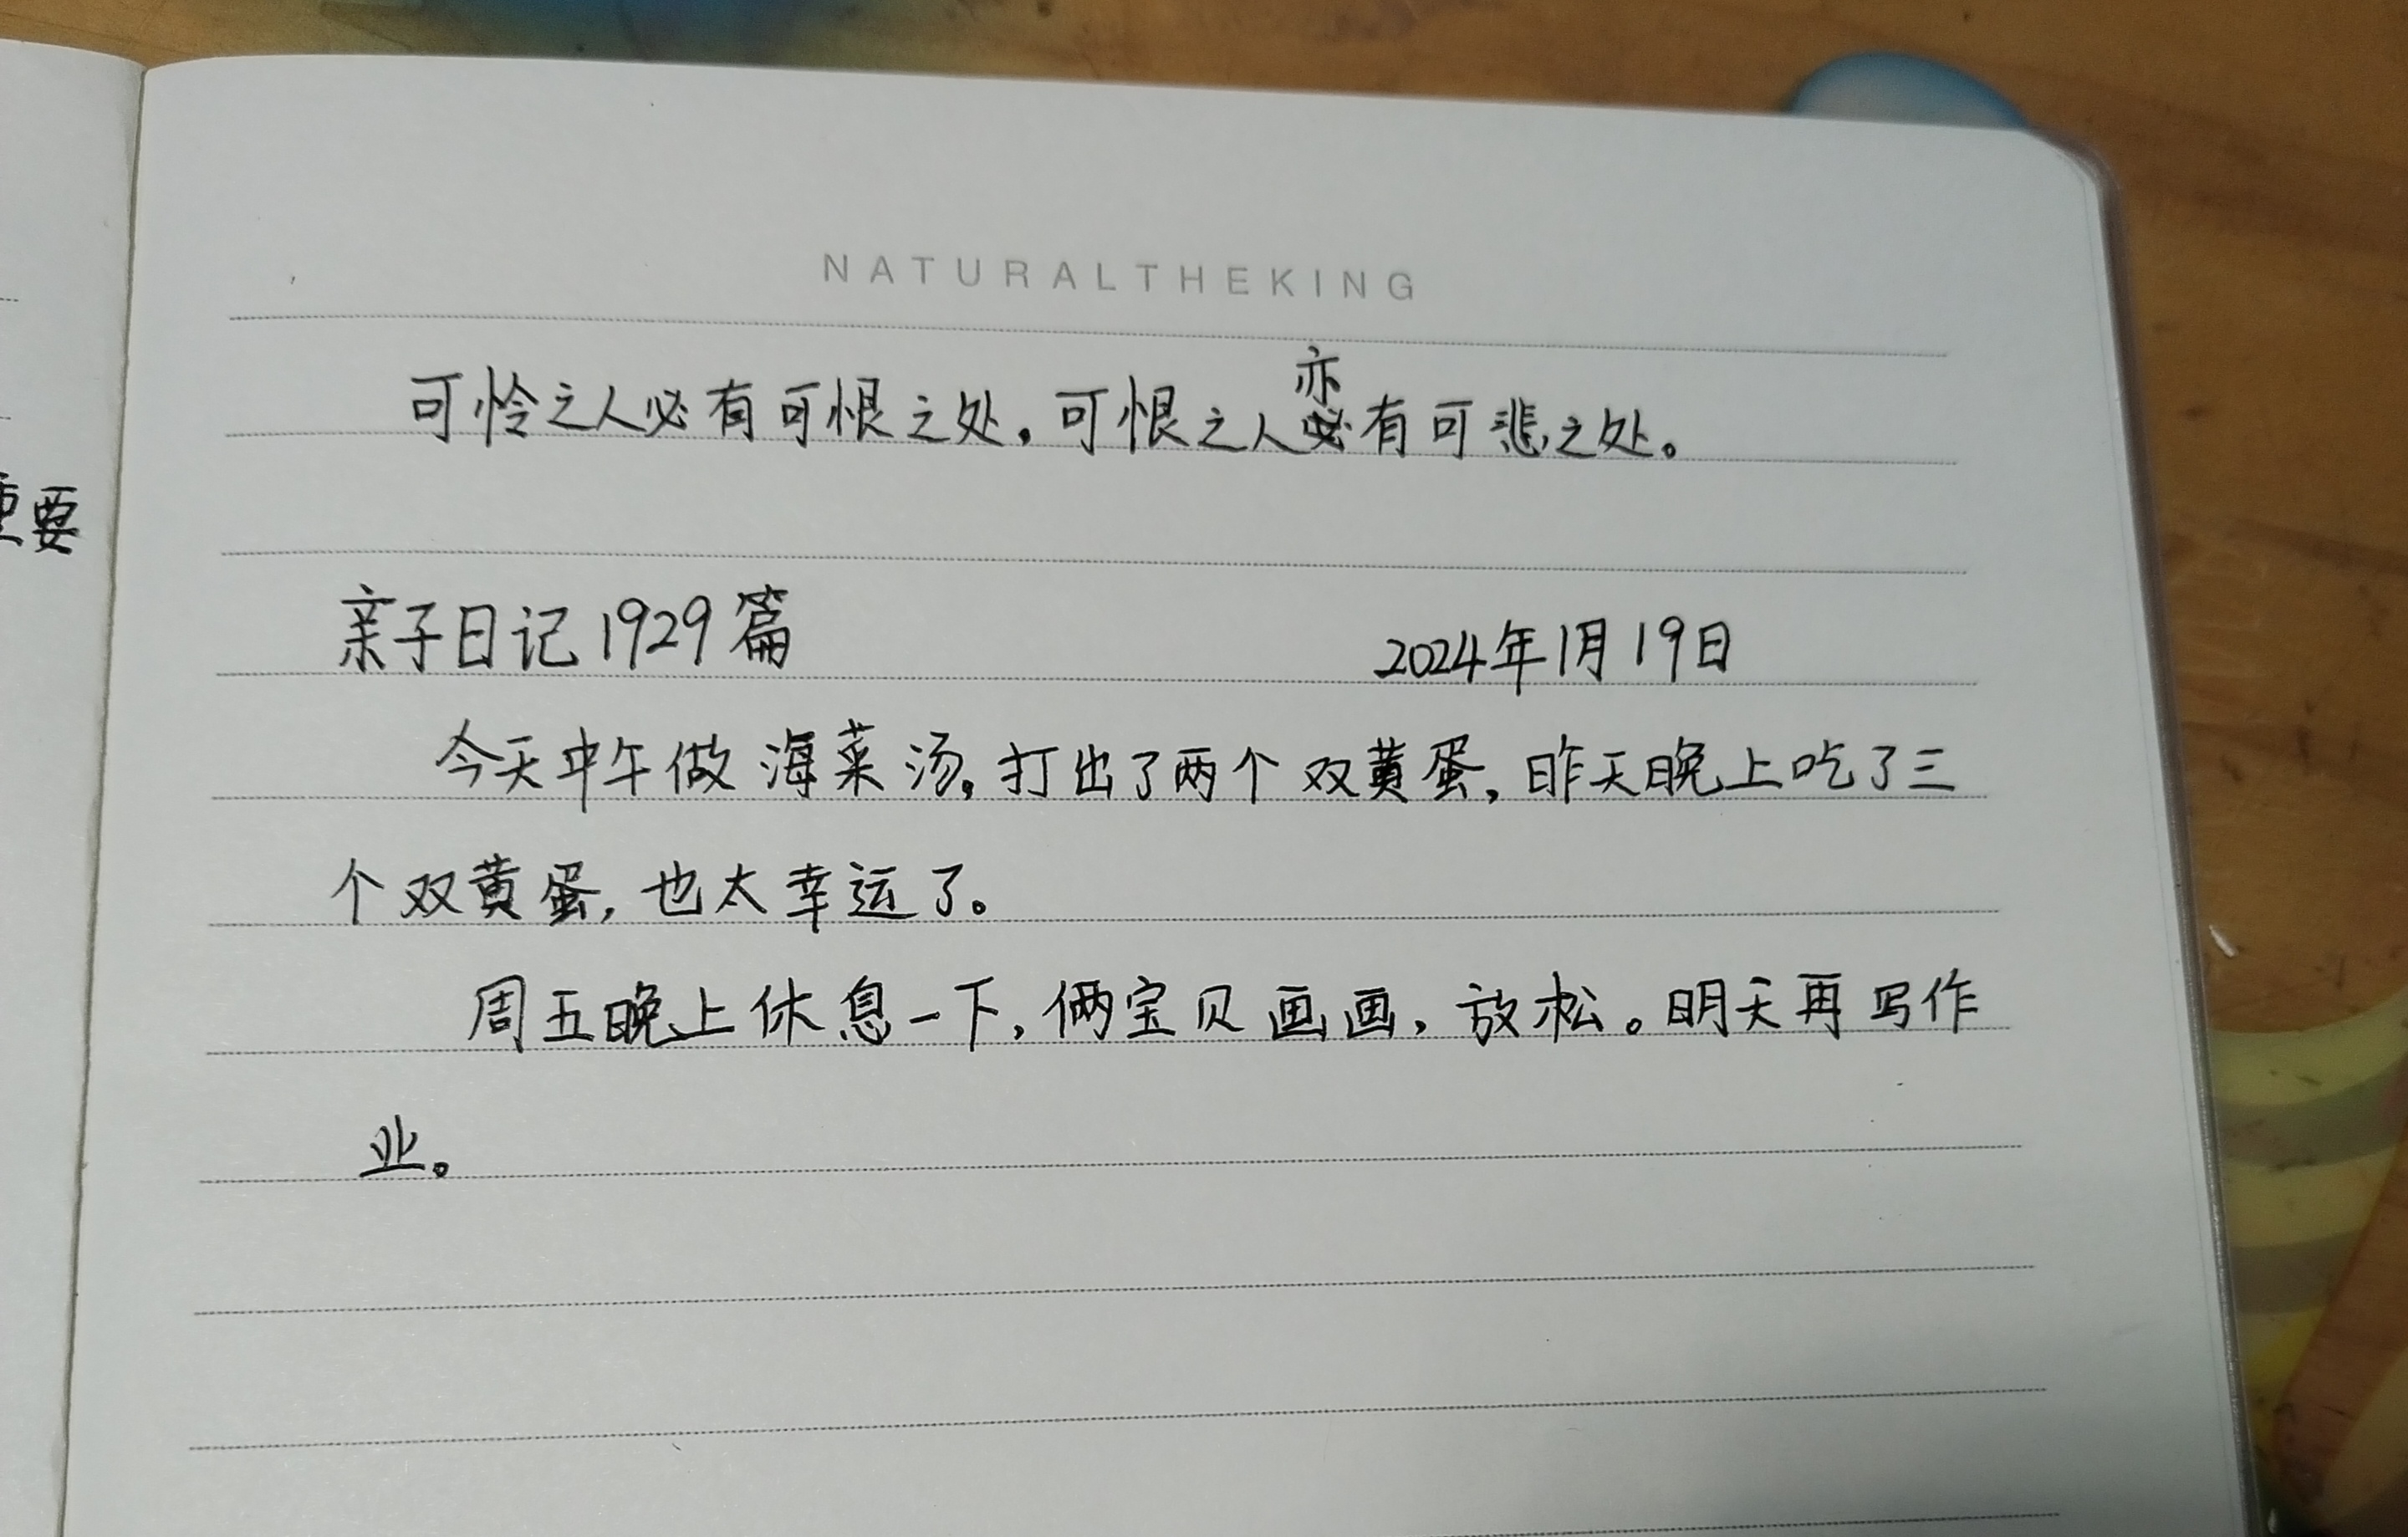 NATURALTHEKING
可怜之人必有可恨之处，可恨之人亦有可悲之处。
重要
亲子日记1929篇 2024年1月19日
今天中午做海菜汤，打出了两个双黄蛋，昨天晚上吃了三
个双黄蛋，也太幸运了。
周五晚上休息一下，俩宝贝画画，放松。明天再写作
业。